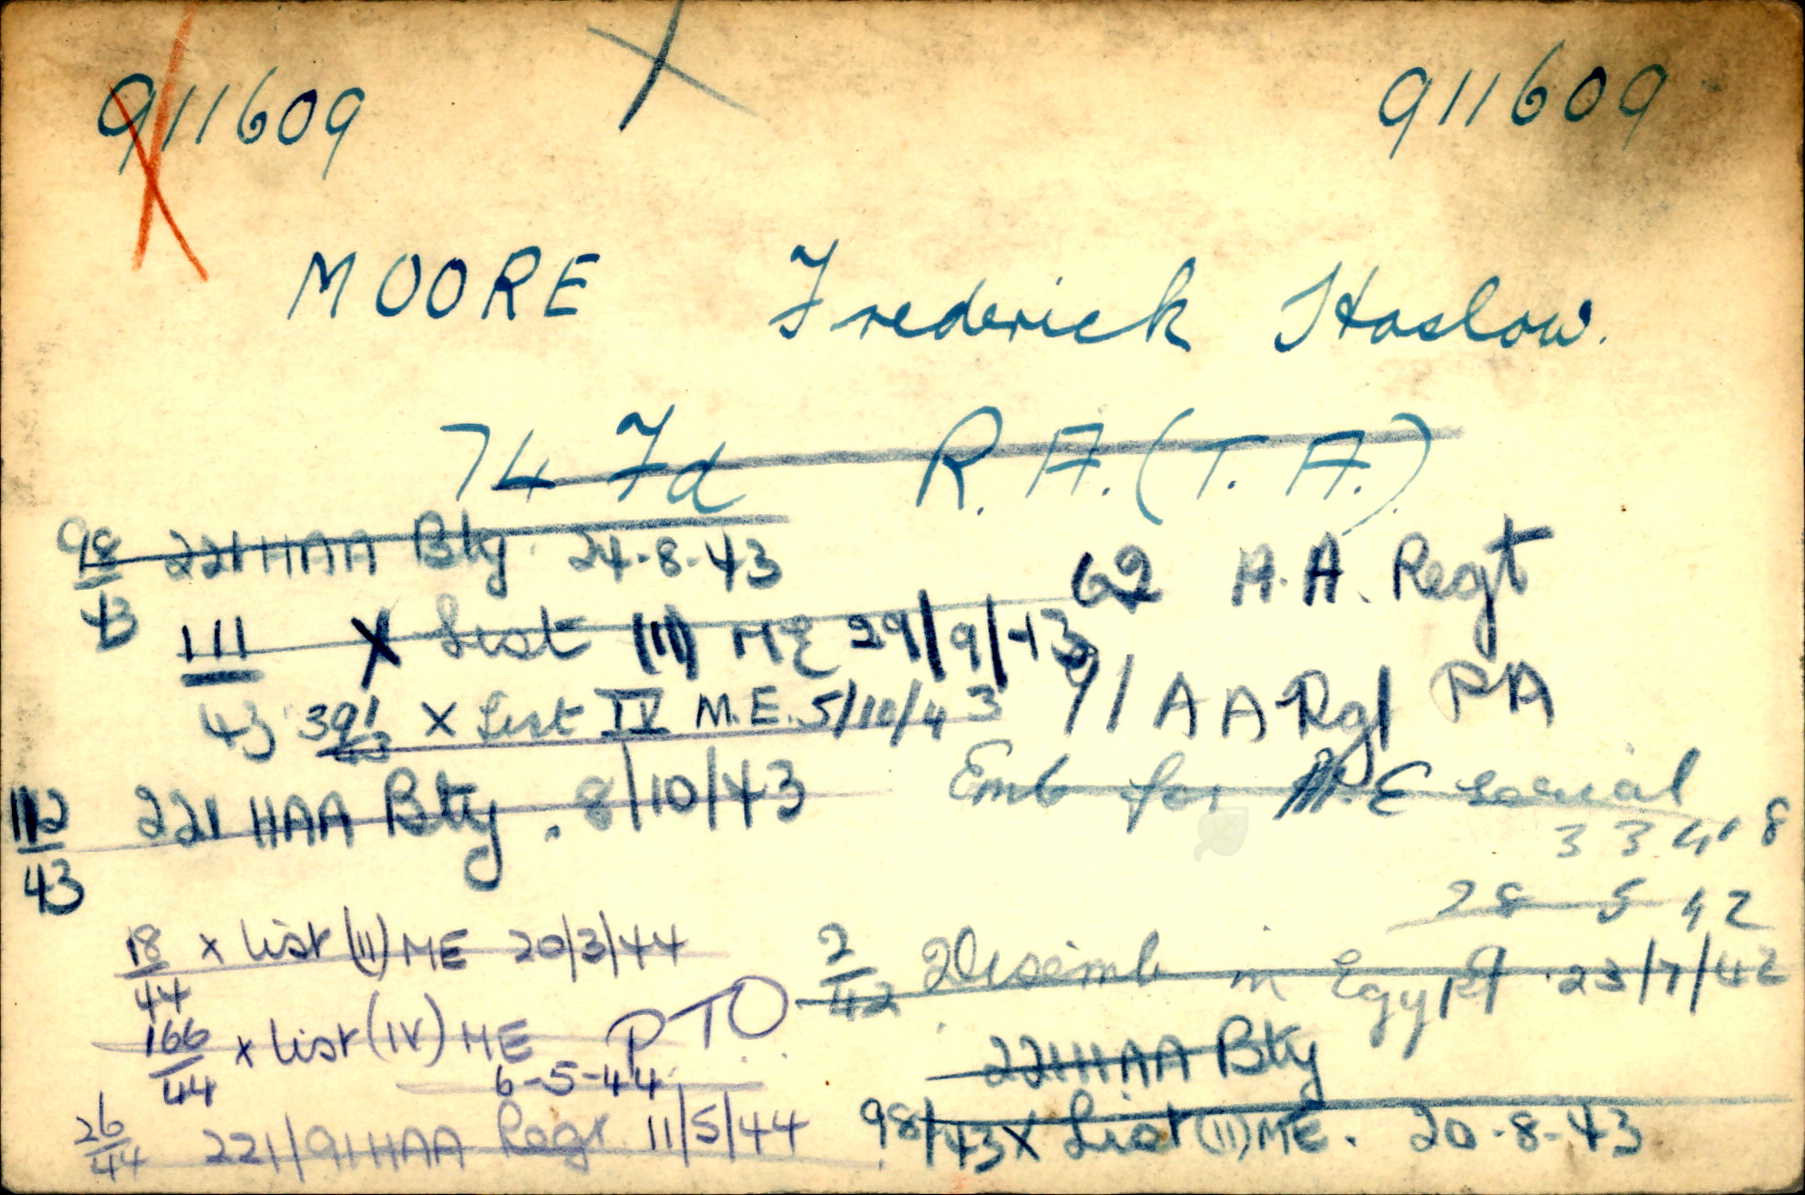 911609 X 911609
MOORE Frederick Haslow.
74 Fd R.A. (T.A.)
98/43 221 HAA Bty 24-8-43
62 A.A. Regt
111/43 X List (II) ME 29/9/43
91 AA Rgt RA
391/43 X List IV M.E. 5/10/43
Emb for M.E serial
3348
28 5 42
112/43 221 HAA Bty. 8/10/43
18/44 x list (II) ME 20/3/44
2/42 Disemb in Egypt 23/7/42
166/44 x list (IV) ME 6-5-44
PTO
221 HAA Bty
26/44 221/91 HAA Regt 11/5/44
98/43 X List (II) ME. 20-8-43